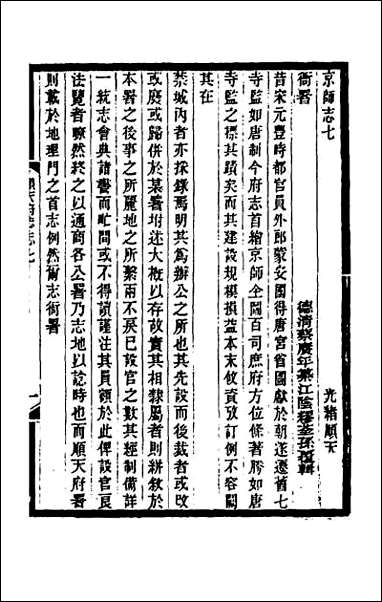 京師志七
光緒順天
衙署
德清蔡賡年纂江陰繆荃孫覆輯
昔宋元豐時都官員外郎蒙安國得唐宮省圖獻於朝遂遷舊七
寺監如唐制今府志首繪京師全圖百司庶府方位條著勝如唐
寺監之標其蹟矣而其建設規模損益本末攸資攷訂例不容闕
其在
禁城內者亦採錄焉明其為辦公之所也其先設而後裁者或改
或廢或歸併於某署坿述大概以存故實其相隸屬者則緐敘於
本署之後事之所麗地之所繫兩不戾已設官之數其經制備詳
一統志會典諸書而旺問或不得讀謹注其員額於此俾設官良
法覽者瞭然終之以通商各公署乃志地以諗時也而順天府署
則載於地理門之首志例然衙志衙署